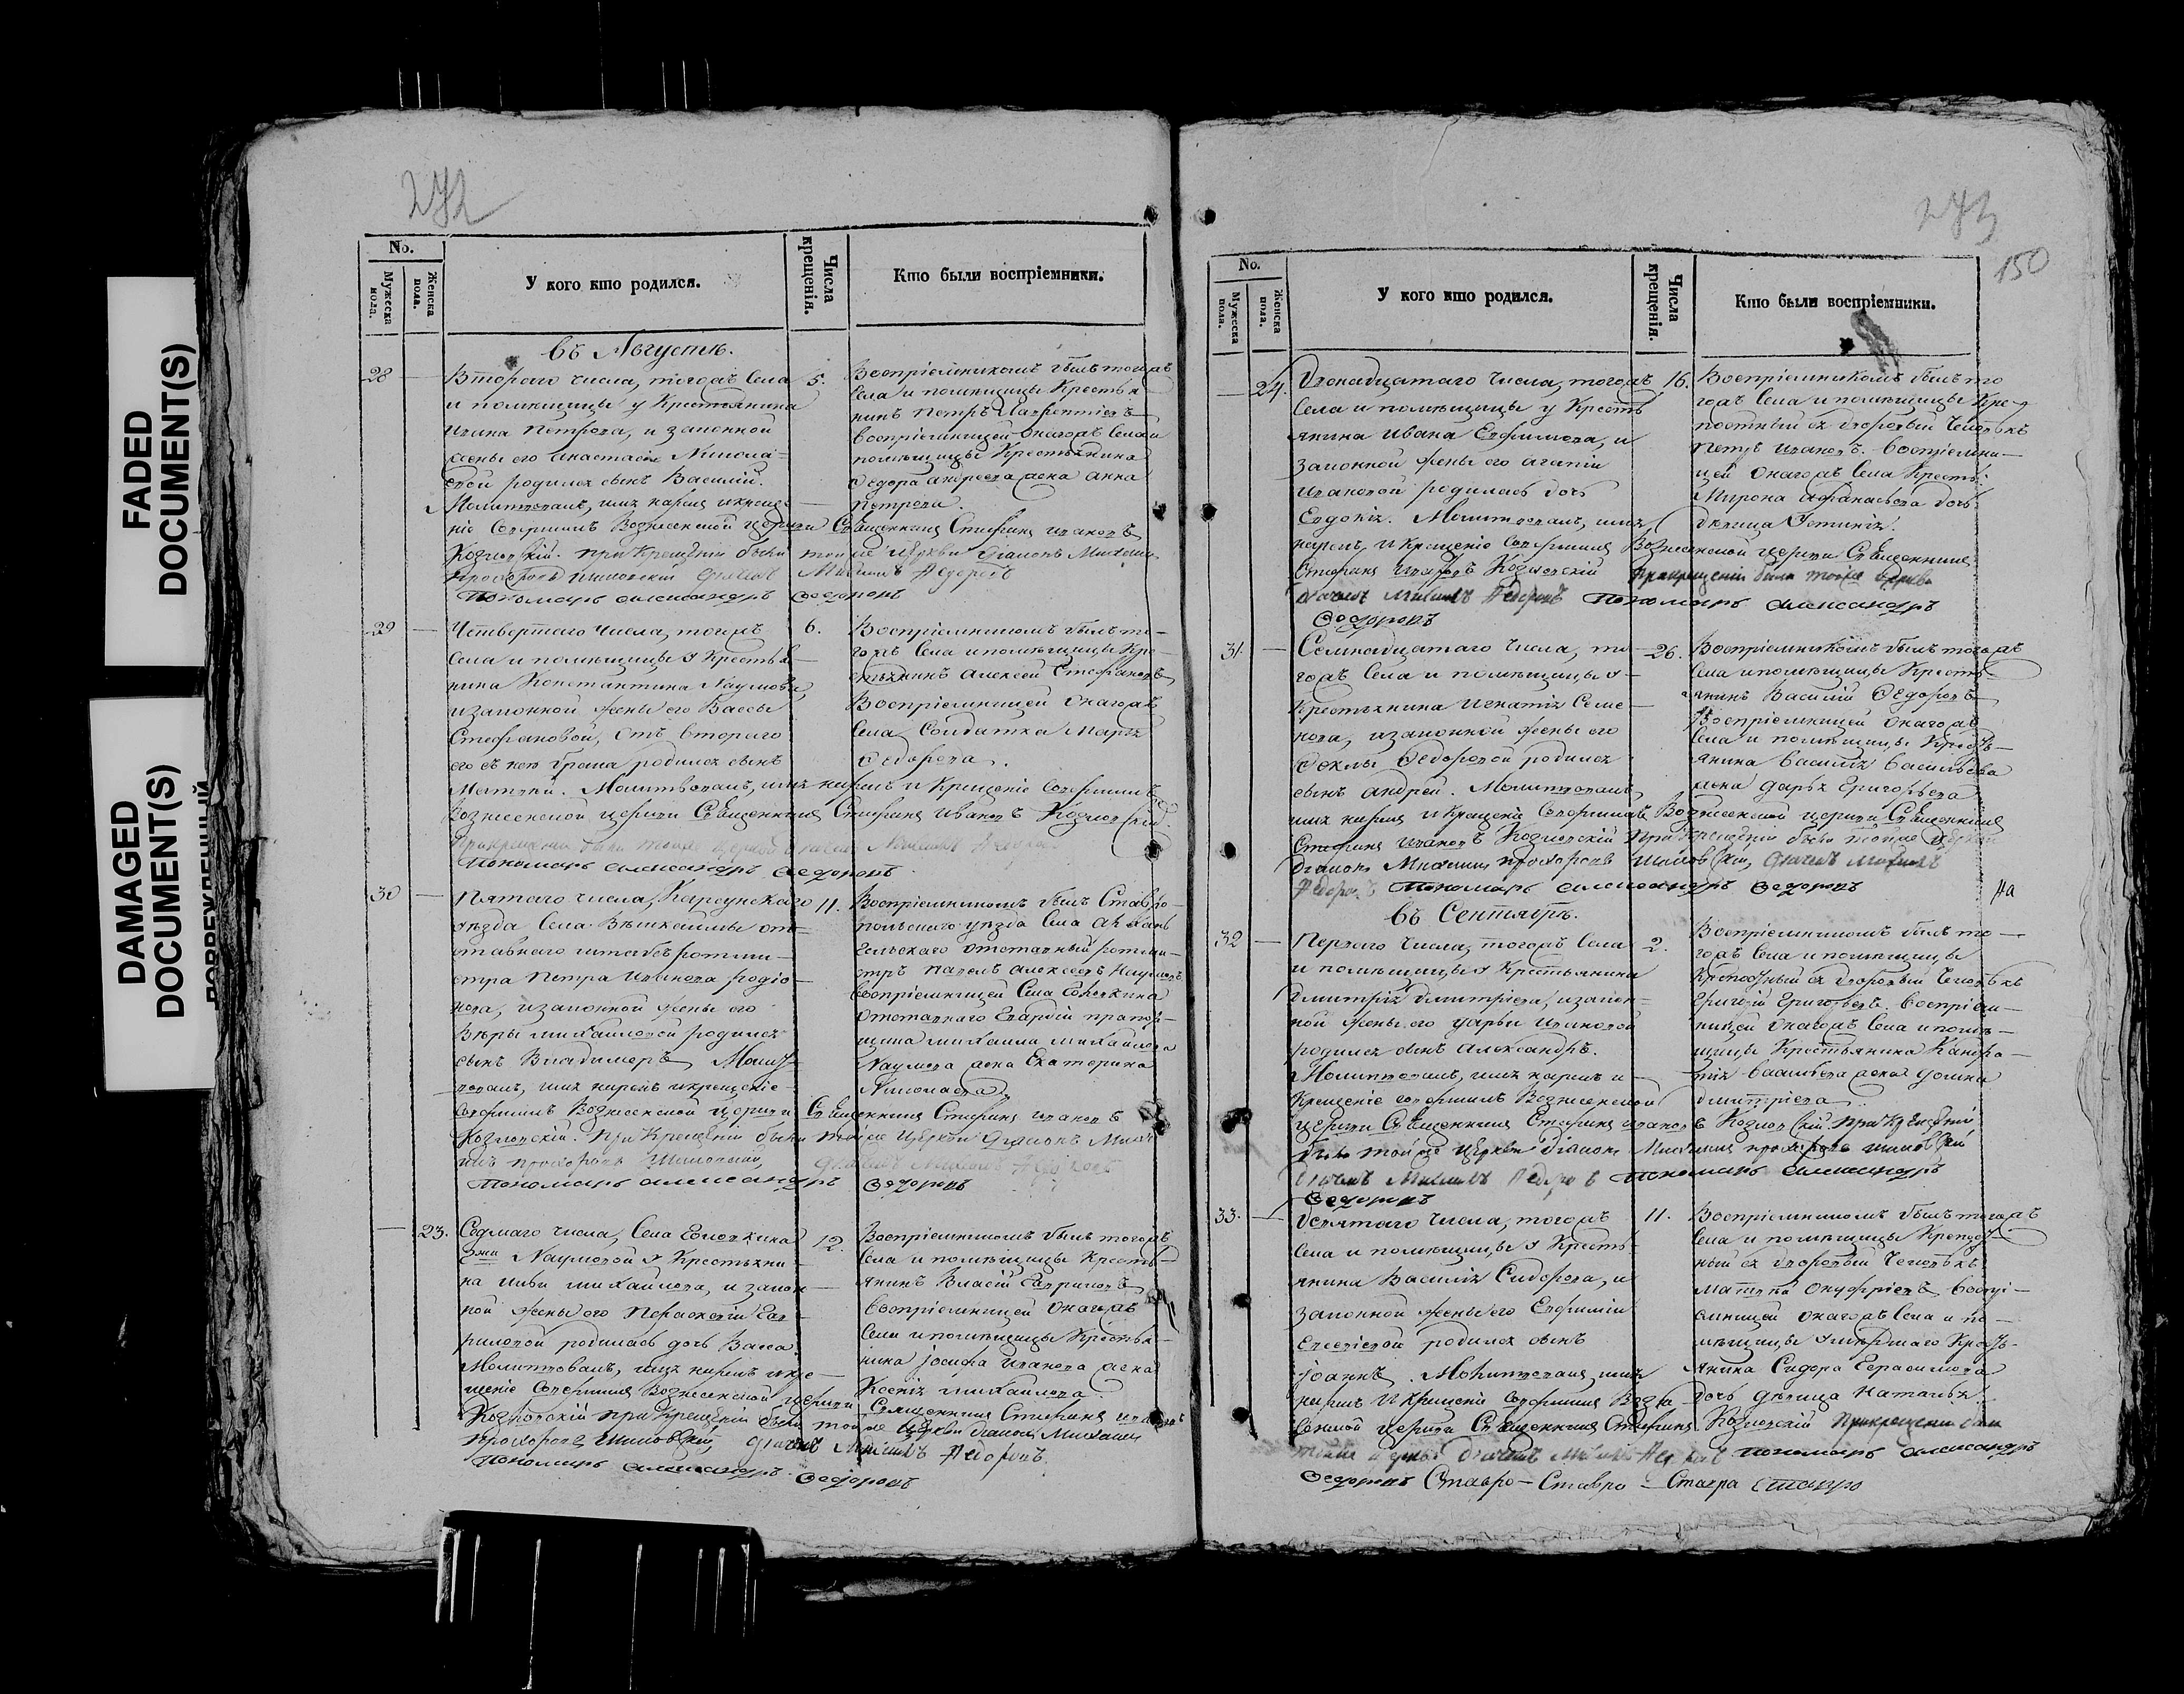 FADED
DOCUMENT(S)
DAMAGED
DOCUMENT(S)
272
No.
Мужеска пола.
Женска пола.
У кого кто родился.
Числа крещенія.
Кто были воспріемники.
въ Августѣ.
28
Втораго числа, тогожъ Села
и помѣщицы у Крестьянина
Ивана Петрова, и законной
жены его Анастасіи Никола-
евой родился сынъ Василій.
Молитвовалъ, имя нарекъ и креще-
ніе совершилъ Вознесенской церкви Священникъ Стефанъ Ивановъ
Козловскій. При крещеніи были той же церкви діаконъ Михаилъ
Прохоровъ Шиловскій дьячекъ Михаилъ Федоровъ
Пономарь Александръ Федоровъ
5.
Воспріемникомъ былъ тогожъ
Села и помѣщицы Крестья-
нинъ Петръ Лаврентіевъ
воспріемницей онагожъ Села и
помѣщицы Крестьянина
Федора Андреева жена Анна
Петрова.
29
Четвертаго числа, тогожъ
Села и помѣщицы у Крестья-
нина Константина Наумова,
и законной жены его Вассы
Стефановой, отъ втораго
его съ нею брака родился сынъ
Матѳій. Молитвовалъ, имя нарекъ и Крещеніе совершилъ
Вознесенской церкви Священникъ Стефанъ Ивановъ Козловскій.
При крещеніи были тойже церкви дьячекъ Михаилъ Федоровъ
Пономарь Александръ Федоровъ
6.
Воспріемникомъ былъ то-
гожъ Села и помѣщицы Кре-
стьянинъ Алексей Стефановъ,
Воспріемницей онагожъ
Села Солдатка Марья
Федорова.
30
Пятаго числа, Карсунскаго
уѣзда Села Вѣшкаймы от-
ставнаго штабсъ ротми-
стра Петра Иванова Родіо-
нова, и законной жены его
Вѣры Михайловой родился
сынъ Владимиръ. Молит-
вовалъ, имя нарекъ и крещеніе
совершилъ Вознесенской церкви Священникъ Стефанъ Ивановъ
Козловскій. При Крещеніи были той же Церкви Діаконъ Миха-
илъ Прохоровъ Шиловскій, дьячекъ Михаилъ Федоровъ
Пономарь Александръ Федоровъ
11.
Воспріемникомъ былъ Ставро-
польскаго уѣзда Села Архан-
гельскаго отставный ротми-
стръ Павелъ Алексеевъ Наумовъ
воспріемницей Села
отставнаго Гвардіи прапор-
щика Михаила Михайлова
Наумова жена Екатерина
Николаева.
23.
Седмаго числа, Села
Г-жи Наумовой у Крестьяни-
на Ильи Михайлова, и закон-
ной жены его Параскевіи Гав-
риловой родилась дочь Васса.
Молитвовалъ, имя нарекъ и кре-
щеніе совершилъ Вознесенской церкви Священникъ Стефанъ Ивановъ
Козловскій при Крещеніи были той же Церкви діаконъ Михаилъ
Прохоровъ Шиловскій, дьячекъ Михаилъ Федоровъ.
Пономарь Александръ Федоровъ
12.
Воспріемникомъ былъ тогожъ
Села и помѣщицы Кресть-
янинъ Власій Гавриловъ
воспріемницей онагожъ
Села и помѣщицы Крестья-
нина Іосифа Иванова жена
Ксенія Михайлова.
273
150
No.
Мужеска пола.
Женска пола.
У кого кто родился.
Числа крещенія.
Кто были воспріемники.
24.
Двенадцатаго числа, тогожъ
Села и помѣщицы у Кресть-
янина Ивана Евфимова, и
законной жены его Агапіи
Ивановой родилась дочь
Евдокія. Молитвовалъ, имя
нарекъ, и Крещеніе совершилъ Вознесенской церкви Священникъ
Стефанъ Ивановъ Козловскій При крещеніи были тойже церкви
дьячекъ Михаилъ Федоровъ Пономарь Александръ
Федоровъ
16.
Воспріемникомъ былъ то-
гожъ Села и помѣщицы Кре-
постный ея дворовый Человѣкъ
Петръ Ивановъ. Воспріемни-
цей онагожъ Села Кресть:
Мирона Афанасьева дочь
дѣвица Устинія.
31.
Семнадцатаго числа, то-
гожъ Села и помѣщицы у
Крестьянина Игнатія Семе-
нова, и законной жены его
Феклы Федоровой родился
сынъ Андрей. Молитвовалъ,
имя нарекъ и Крещеніе Совершилъ Вознесенской церкви Священникъ
Стефанъ Ивановъ Козловскій При крещеніи были той же Церкви
Діаконъ Михаилъ Прохоровъ Шиловскій, дьячекъ Михаилъ
Федоровъ Пономарь Александръ Федоровъ
26.
Воспріемникомъ былъ тогожъ
Села и помѣщицы Кресть-
янинъ Василій Федоровъ
Воспріемницей онагожъ
Села и помѣщицы Кресть-
янина Василія Васильева
жена Дарья Григорьева.
На
въ Сентябрѣ.
32
Перваго числа, тогожъ Села
и помѣщицы у Крестьянина
Дмитрія Дмитріева, и закон-
ной жены его Дарьи Ивановой
родился сынъ Александръ.
Молитвовалъ, имя нарекъ и
Крещеніе совершилъ Вознесенской
церкви Священникъ Стефанъ Ивановъ Козловскій. При Крещеніи
были той же Церкви діаконъ Михаилъ Прохоровъ Шиловскій
дьячекъ Михаилъ Федоровъ Пономарь Александръ
Федоровъ
2.
Воспріемникомъ былъ то-
гожъ Села и помѣщицы
Крепостный ея дворовый Человѣкъ
Григорій Григорьевъ. Воспріем-
ницей онагожъ Села и помѣ-
щицы Крестьянина Кандра-
тія жена Домна
Дмитріева.
33.
Девятаго числа, тогожъ
Села и помѣщицы у Кресть-
янина Василія Сидорова, и
законной жены его Евфиміи
Евсевіевой родился сынъ
Іоаннъ. Молитвовалъ, имя
нарекъ и Крещеніе совершилъ Возне-
сенской церкви Священникъ Стефанъ Козловскій При крещеніи были
тойже церкви дьячекъ Михаилъ Федоровъ Пономарь Александръ
Федоровъ Ставро-Ставро-Ставро Ставро
11.
Воспріемникомъ былъ тогожъ
Села и помѣщицы Крепост-
ный ея дворовый Человѣкъ
Матвѣй Онуфріевъ. Воспрі-
емницей онагожъ Села и по-
мѣщицы умершаго Кресть-
янина Сидора Герасимова
дочь дѣвица Наталья.